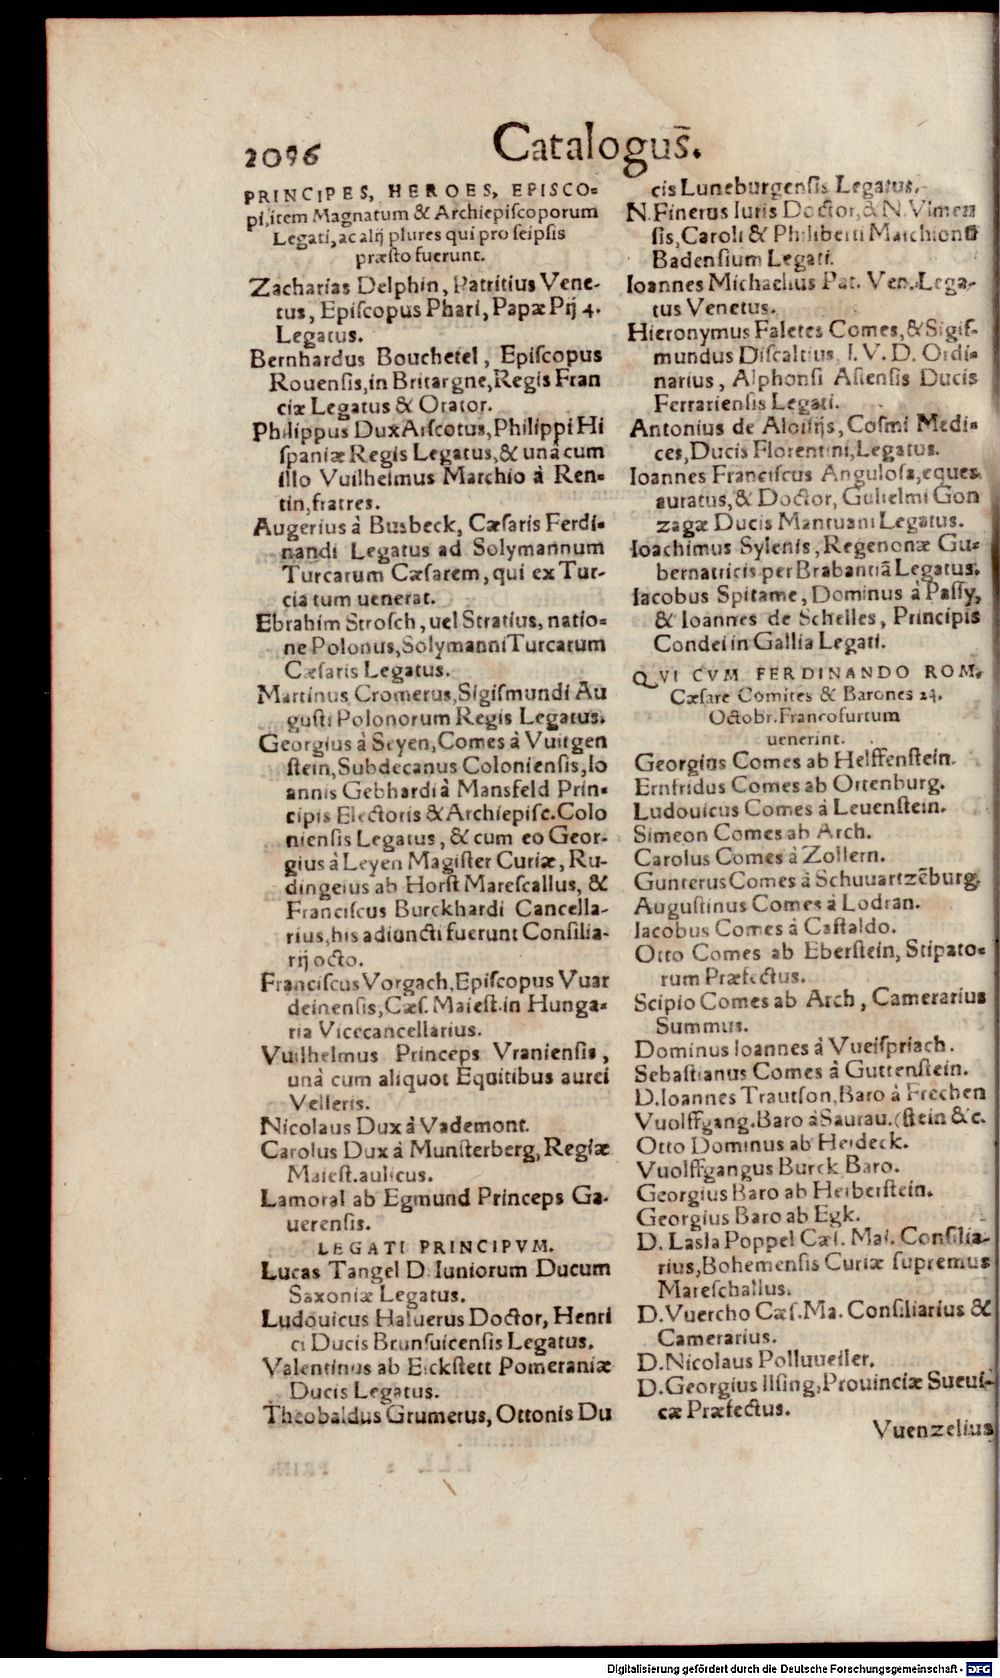 2096
Catalogus̄.
PRINCIPES, HEROES, EPISCO-
pi, item Magnatum & Archiepiscoporum
Legati, ac alij plures qui pro seipsis
præsto fuerunt.
Zacharias Delphin, Patritius Vene-
tus, Episcopus Phari, Papæ Pij 4.
Legatus.
Bernhardus Bouchetel, Episcopus
Rouensis, in Britargne, Regis Fran
ciæ Legatus & Orator.
Philippus Dux Arscotus, Philippi Hi
spaniæ Regis Legatus, & unà cum
illo Vuilhelmus Marchio à Ren-
tin, fratres.
Augerius à Busbeck, Cæsaris Ferdi-
nandi Legatus ad Solymannum
Turcarum Cæsarem, qui ex Tur-
cia tum uenerat.
Ebrahim Strosch, uel Stratius, natio-
ne Polonus, Solymanni Turcarum
Cæsaris Legatus.
Martinus Cromerus, Sigismundi Au
gusti Polonorum Regis Legatus.
Georgius à Seyen, Comes à Vuitgen
stein, Subdecanus Coloniensis, Io
annis Gebhardi à Mansfeld Prin-
cipis Electoris & Archiepisc. Colo
niensis Legatus, & cum eo Geor-
gius à Leyen Magister Curiæ, Ru-
dingeius ab Horst Marescallus, &
Franciscus Burckhardi Cancella-
rius, his adiuncti fuerunt Consilia-
rij octo.
Franciscus Vorgach, Episcopus Vuar
deinensis, Cæs. Maiest. in Hunga-
ria Vicecancellarius.
Vuilhelmus Princeps Vraniensis,
unà cum aliquot Equitibus aurei
Velleris.
Nicolaus Dux à Vademont.
Carolus Dux à Munsterberg, Regiæ
Maiest. aulicus.
Lamoral ab Egmund Princeps Ga-
uerensis.
LEGATI PRINCIPVM.
Lucas Tangel D. Iuniorum Ducum
Saxoniæ Legatus.
Ludouicus Haluerus Doctor, Henri
ci Ducis Brunsuicensis Legatus.
Valentinus ab Eickstett Pomeraniæ
Ducis Legatus.
Theobaldus Grumerus, Ottonis Du
cis Luneburgensis Legatus.
N. Finerus Iuris Doctor, & N. Vimen
sis, Caroli & Philiberti Marchionū
Badensium Legati.
Ioannes Michaelius Pat. Ven. Lega-
tus Venetus.
Hieronymus Faletes Comes, & Sigis-
mundus Discaltius, I. V. D. Ordi-
narius, Alphonsi Astensis Ducis
Ferrariensis Legati.
Antonius de Aloisijs, Cosmi Medi-
ces, Ducis Florentini, Legatus.
Ioannes Franciscus Angulosa, eques
auratus, & Doctor, Gulielmi Gon
zagæ Ducis Mantuani Legatus.
Ioachimus Sylenis, Regenonæ Gu-
bernatricis per Brabantiā Legatus.
Iacobus Spitame, Dominus à Passy,
& Ioannes de Schelles, Principis
Condei in Gallia Legati.
QVI CVM FERDINANDO ROM.
Cæsare Comites & Barones 24.
Octobr. Francofurtum
uenerint.
Georgius Comes ab Helffenstein.
Ernfridus Comes ab Ortenburg.
Ludouicus Comes à Leuenstein.
Simeon Comes ab Arch.
Carolus Comes à Zollern.
Gunterus Comes à Schuuartzēburg.
Augustinus Comes à Lodran.
Iacobus Comes à Castaldo.
Otto Comes ab Eberstein, Stipato-
rum Præfectus.
Scipio Comes ab Arch, Camerarius
Summus.
Dominus Ioannes à Vueispriach.
Sebastianus Comes à Guttenstein.
D. Ioannes Trautson, Baro à Frechen
Vuolffgang. Baro à Saurau. (stein &c.
Otto Dominus ab Heideck.
Vuolffgangus Burck Baro.
Georgius Baro ab Herberstein.
Georgius Baro ab Egk.
D. Lasla Poppel Cæs. Mai. Consilia-
rius, Bohemensis Curiæ supremus
Mareschallus.
D. Vuercho Cæs. Ma. Consiliarius &
Camerarius.
D. Nicolaus Polluueiler.
D. Georgius Ilsing, Prouinciæ Sueui-
cæ Præfectus.
Vuenzelius
Digitalisierung gefördert durch die Deutsche Forschungsgemeinschaft - DFG